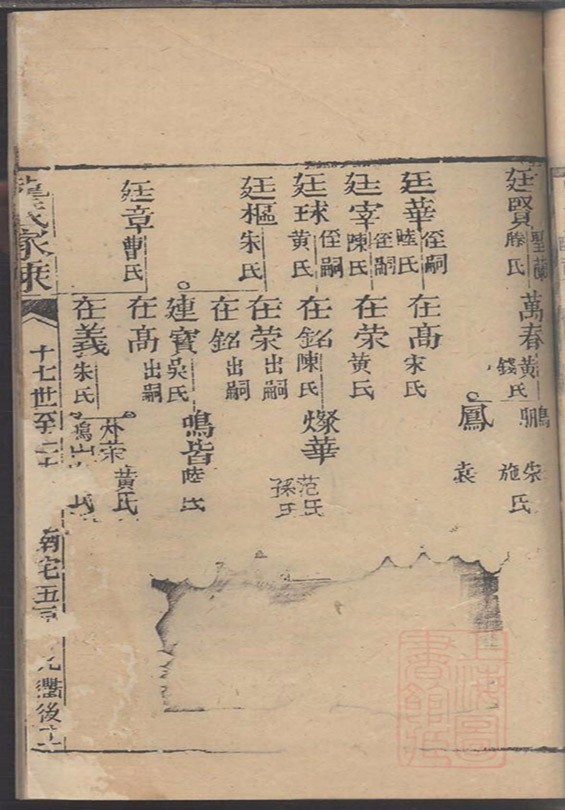 廷賢 聖蘭 滕氏
萬春 黃氏 錢氏
鵬 朱氏 施氏
鳳 袁
廷華 侄嗣 陸氏
在高 宋氏
廷宰 侄嗣 陳氏
在荣 黃氏
廷球 侄嗣 黃氏
在銘 陳氏
燦華 范氏 孫氏
廷樞 朱氏
在荣 出嗣
在銘 出嗣
連寶 吳氏
鳴皆 陸氏
廷章 曹氏
在高 出嗣
在義 朱氏
荣 黃氏
氏
氏家乘
十七世至二十
宅五
後
上海圖書館藏